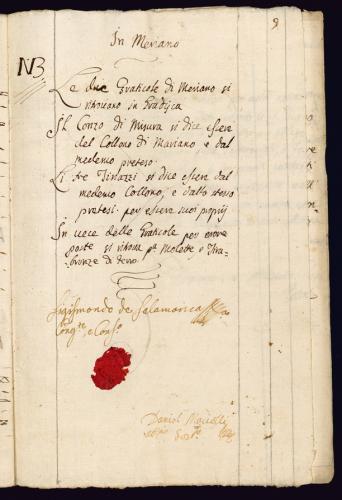 9
In Meriano
NB
Le due Graticole di Meriano si
ritrovano in Gradisca
Il Conzo di Misura si dice essere
del Collono di Mariano e dal
medemo preteso.
Li tre Tinazzi si dice essere dal
medemo Collono, e dallo stesso
pretesi per essere suoi proprij
In vece delle Graticole per
poste si ritrova Molette, e
bronze di ferro
Sigismondo de Salamanca
e Cons.
Daniel